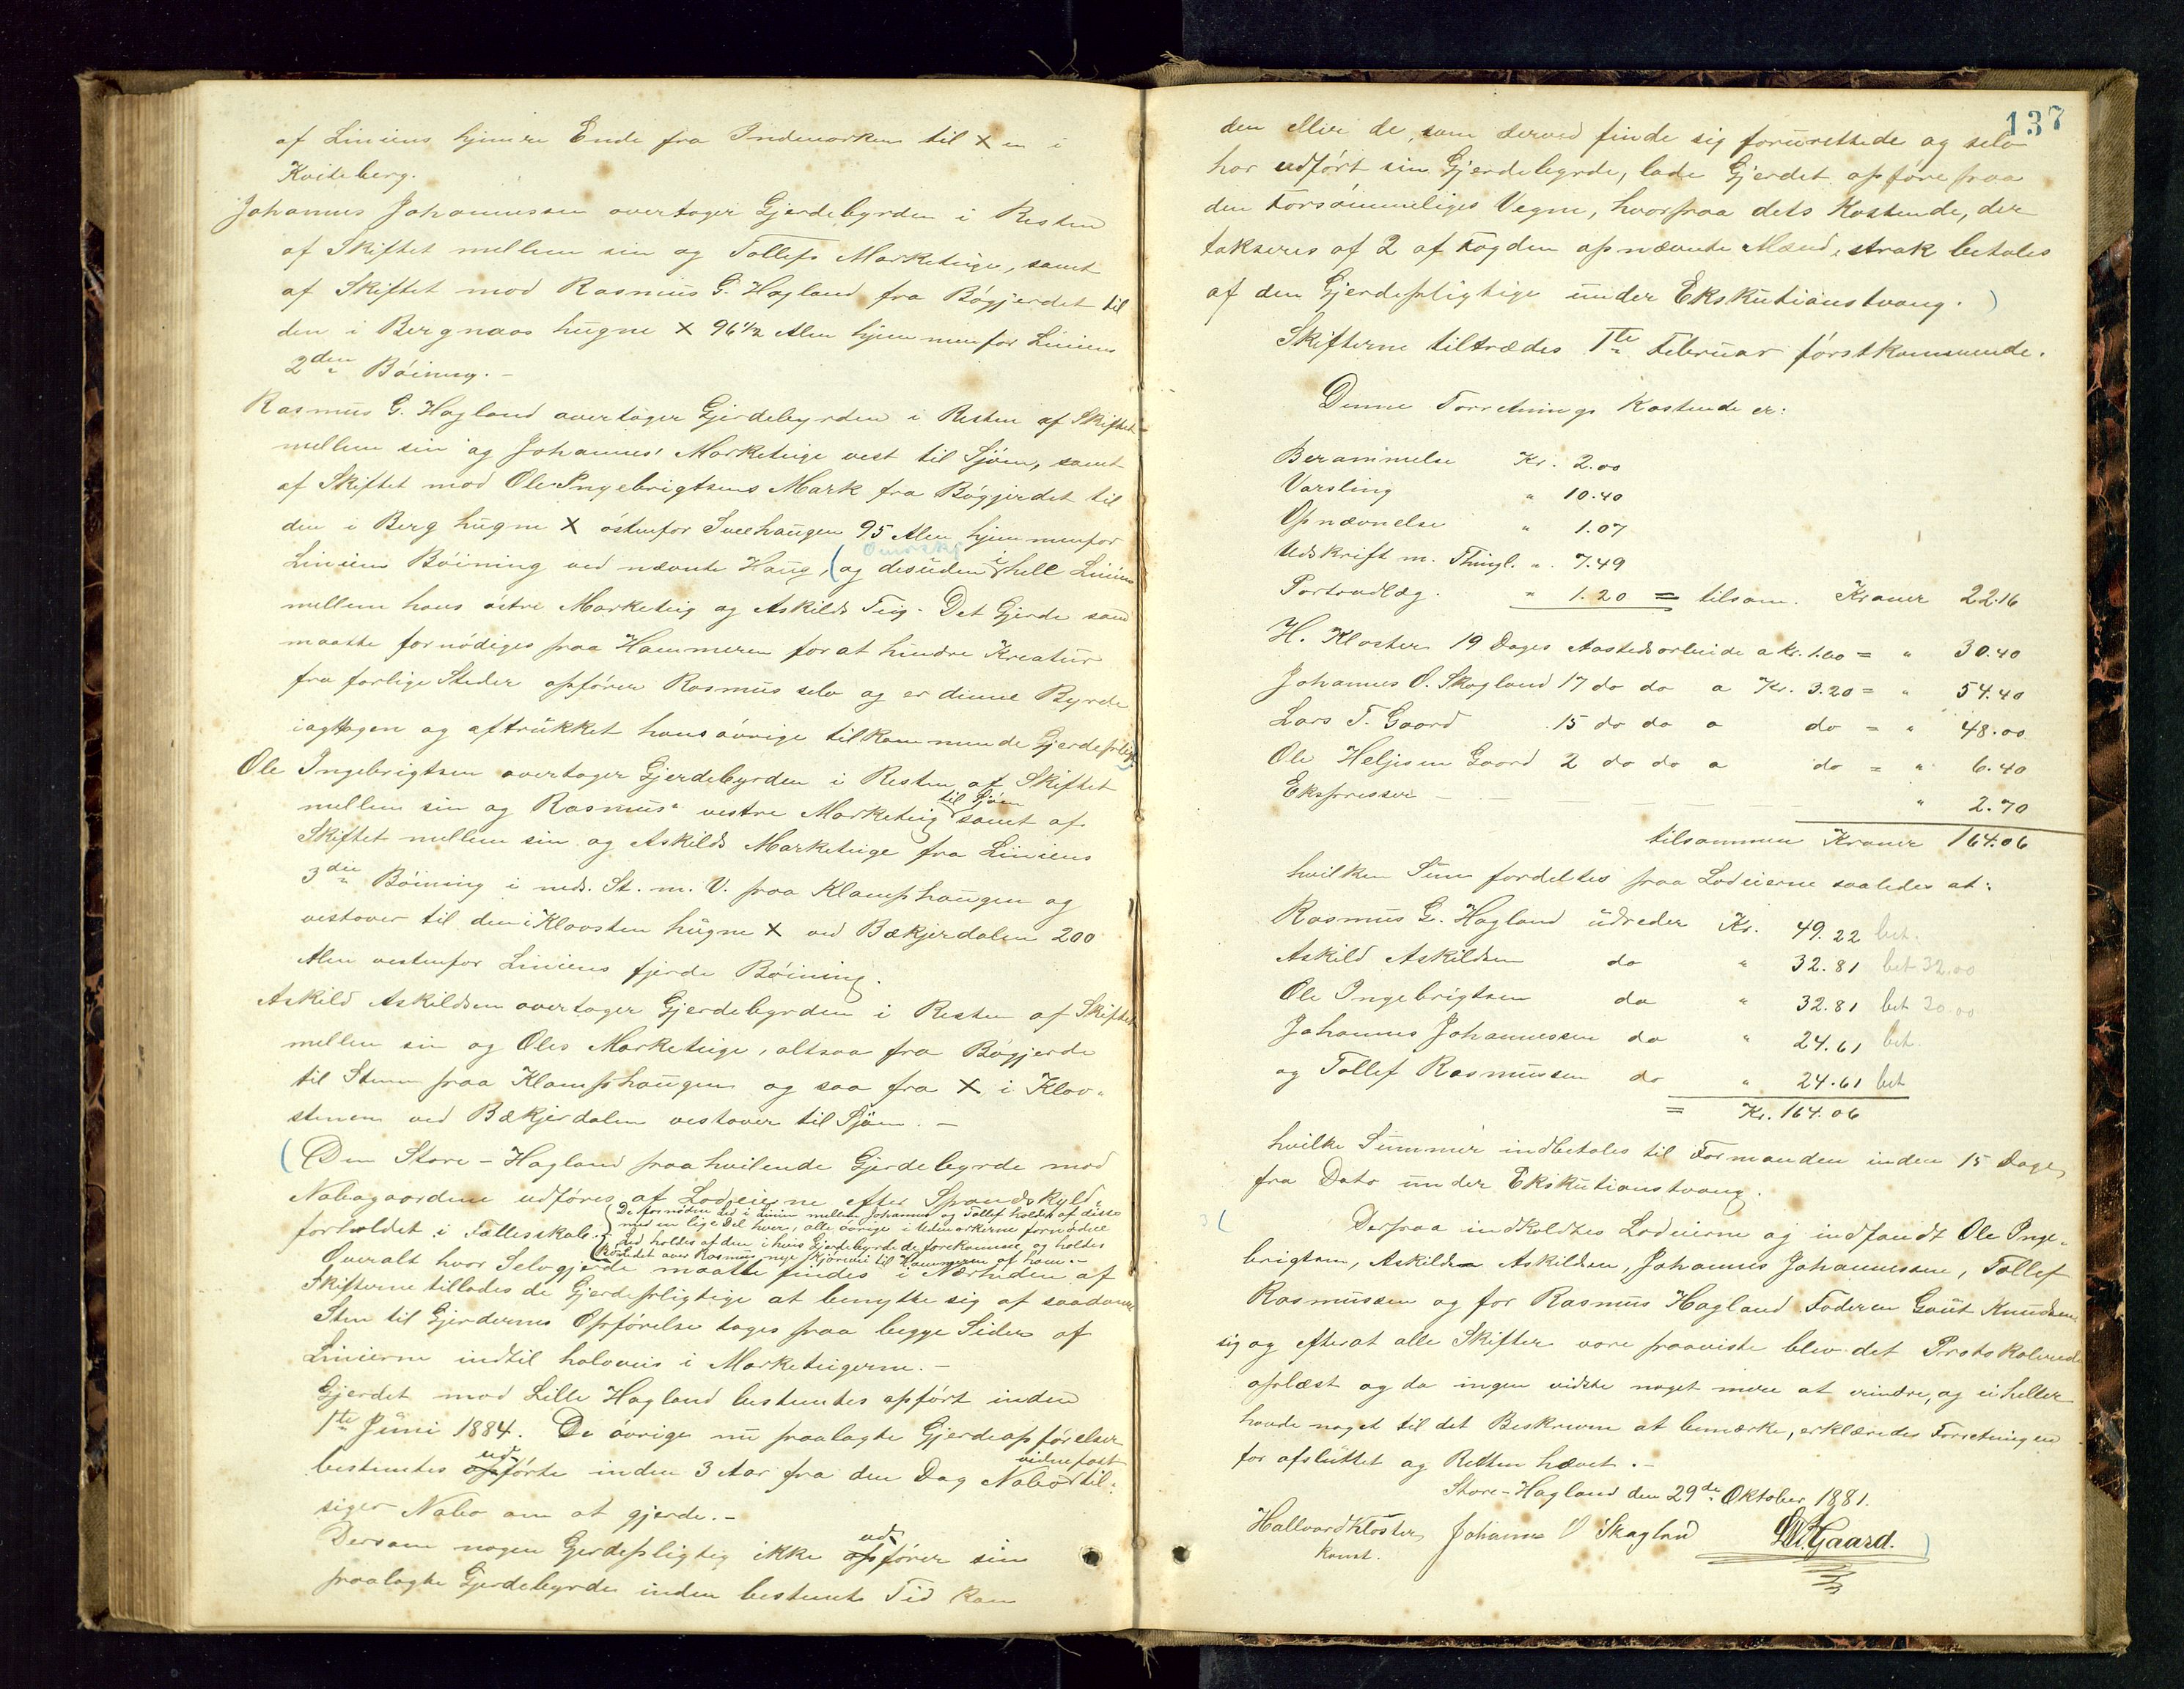 af Liniens hjemre Ende fra Indmarken til X en i
Kviteberg.
Johannes Johannessen overtager Gjerdebyrden i Resten
af Skiftet mellem sin og Tollefs Marketeige, samt
af Skiftet mod Rasmus G. Hagland fra Bøgjerdet til
den i Bergnaas hugne X 96 1/2 Alen hjemmenfor Liniens
2den Bøining. -
Rasmus G. Hagland overtager Gjerdebyrden i Resten af Skiftet
mellem sin og Johannes' Marketeige vest til Sjøen, samt
af Skiftet mod Ole Ingebrigtsens Mark fra Bøgjerdet til
den i Berg hugne X østenfor Sveehaugen 95 Alen hjemmenfor
Liniens Bøining ved nævnte Haug, (og desuden i hele Linien
mellem hans østre Marketeig og Askilds Teig - Det Gjerde som
maatte fornødiges paa Hammeren for at hindre Kreatur
fra farlige Steder opfører Rasmus selv og er denne Byrde
iagttagen og aftrukket hans øvrige tilkommende Gjerdepligt)
Ole Ingebrigtsen overtager Gjerdebyrden i Resten af Skiftet
mellem sin og Rasmus' vestre Marketeig til Sjøen samt af
Skiftet mellem sin og Askilds Marketeige fra Liniens
3die Bøining i neds. St. m. V. paa Klamphaugen og
vestover til den i Klovsten hugne X ved Bækjerdalen 200
Alen vestenfor Liniens fjerde Bøining.
Askild Askildsen overtager Gjerdebyrden i Resten af Skiftet
mellem sin og Oles Marketeige, altsaa fra Bøgjerde
til Stenen paa Klamphaugen og saa fra X i Klov-
stenen ved Bækjerdalen vestover til Sjøen. -
(Den Store-Hagland paahvilende Gjerdebyrde mod
Nabogaardene udføres af Lodeierne efter Skyld-
forholdet i Fællesskab. -
De fornødne Led i Linien mellem Johannes og Tollef holdes af disse
med en lige Del hver, alle øvrige i Udmarkerne fornødne
Led holdes af den i hvis Gjerdebyrde de forekomme og holdes
Ledet over Rasmus nye Kjørevei til Hammeren af ham. -
Overalt hvor Selvgjerde maatte findes i Nærheden af
Skifterne tillades de Gjerdepligtige at benytte sig af saadanne
Sten til Gjerdernes Opførelse tages paa begge Sider af
Linierne indtil halvveis i Marketeigerne. -
Gjerdet mod Lille Hagland bestemtes opført inden
1te Juni 1884. De øvrige nu paalagte Gjerdeopførelser
bestemtes udførte inden 3 Aar fra den Dag Nabo vidnefast til-
siger Nabo om at gjerde. -
Dersom nogen Gjerdepligtig ikke udfører sin
paalagte Gjerdebyrde inden bestemt Tid kan
137
den eller de, som derved finde sig forurettede og selv
har udført sin Gjerdebyrde, lade Gjerdet opføre paa
den Forsømmeliges Vegne, hvorpaa dets Kostende, der
takseres af 2 af Fogden opnævnte Mænd, strak betales
af den Gjerdepligtige under Eksekutionstvang. )
Skifterne tiltrædes 1te Februar førstkommende.
Denne Forretnings Kostende er:
Berammelse Kr. 2.00
Varsling " 10.40
Opnævnelse " 1.07
Udskrift m. Thingl. " 7.49
Portoudlæg. " 1.20 = tilsam. Kroner 22.16
H. Kloster 19 Dages Aastedsarbeide a Kr. 1.60 = " 30.40
Johannes O. Skogland 17 do do a Kr. 3.20 = " 54.40
Lars T. Gaard 15 do do a do = " 48.00
Ole Heljesen Gaard 2 do do a do = " 6.40
Ekspresser - " 2.70
tilsammen Kroner 164.06
hvilken Sum fordeltes paa Lodeierne saaledes at:
Rasmus G. Hagland udreder Kr. 49.22 bet.
Askild Askildsen do " 32.81 bet 32.00
Ole Ingebrigtsen do " 32.81 bet 30.00
Johannes Johannessen do " 24.61 bet.
og Tollef Rasmussen do " 24.61 bet
= Kr. 164.06
hvilke Summer indbetales til Formanden inden 15 Dage
fra Dato under Eksekutionstvang.
Derpaa indkaldtes Lodeierne og indfandt Ole Inge-
brigtsen, Askild Askildsen, Johannes Johannessen, Tollef
Rasmussen og for Rasmus Hagland Faderen Gaut Knudsen
sig og efterat alle Skifter vare paaviste blev det Protokolerede
oplæst og da ingen vidste noget mere at erindre, og ei heller
havde noget til det Beskrevne at bemærke, erklæredes Forretningen
for afsluttet og Retten hævet. -
Store-Hagland den 29de Oktober 1881.
Hallvard Kloster Johannes O Skagland L. T. Gaard.
konst.